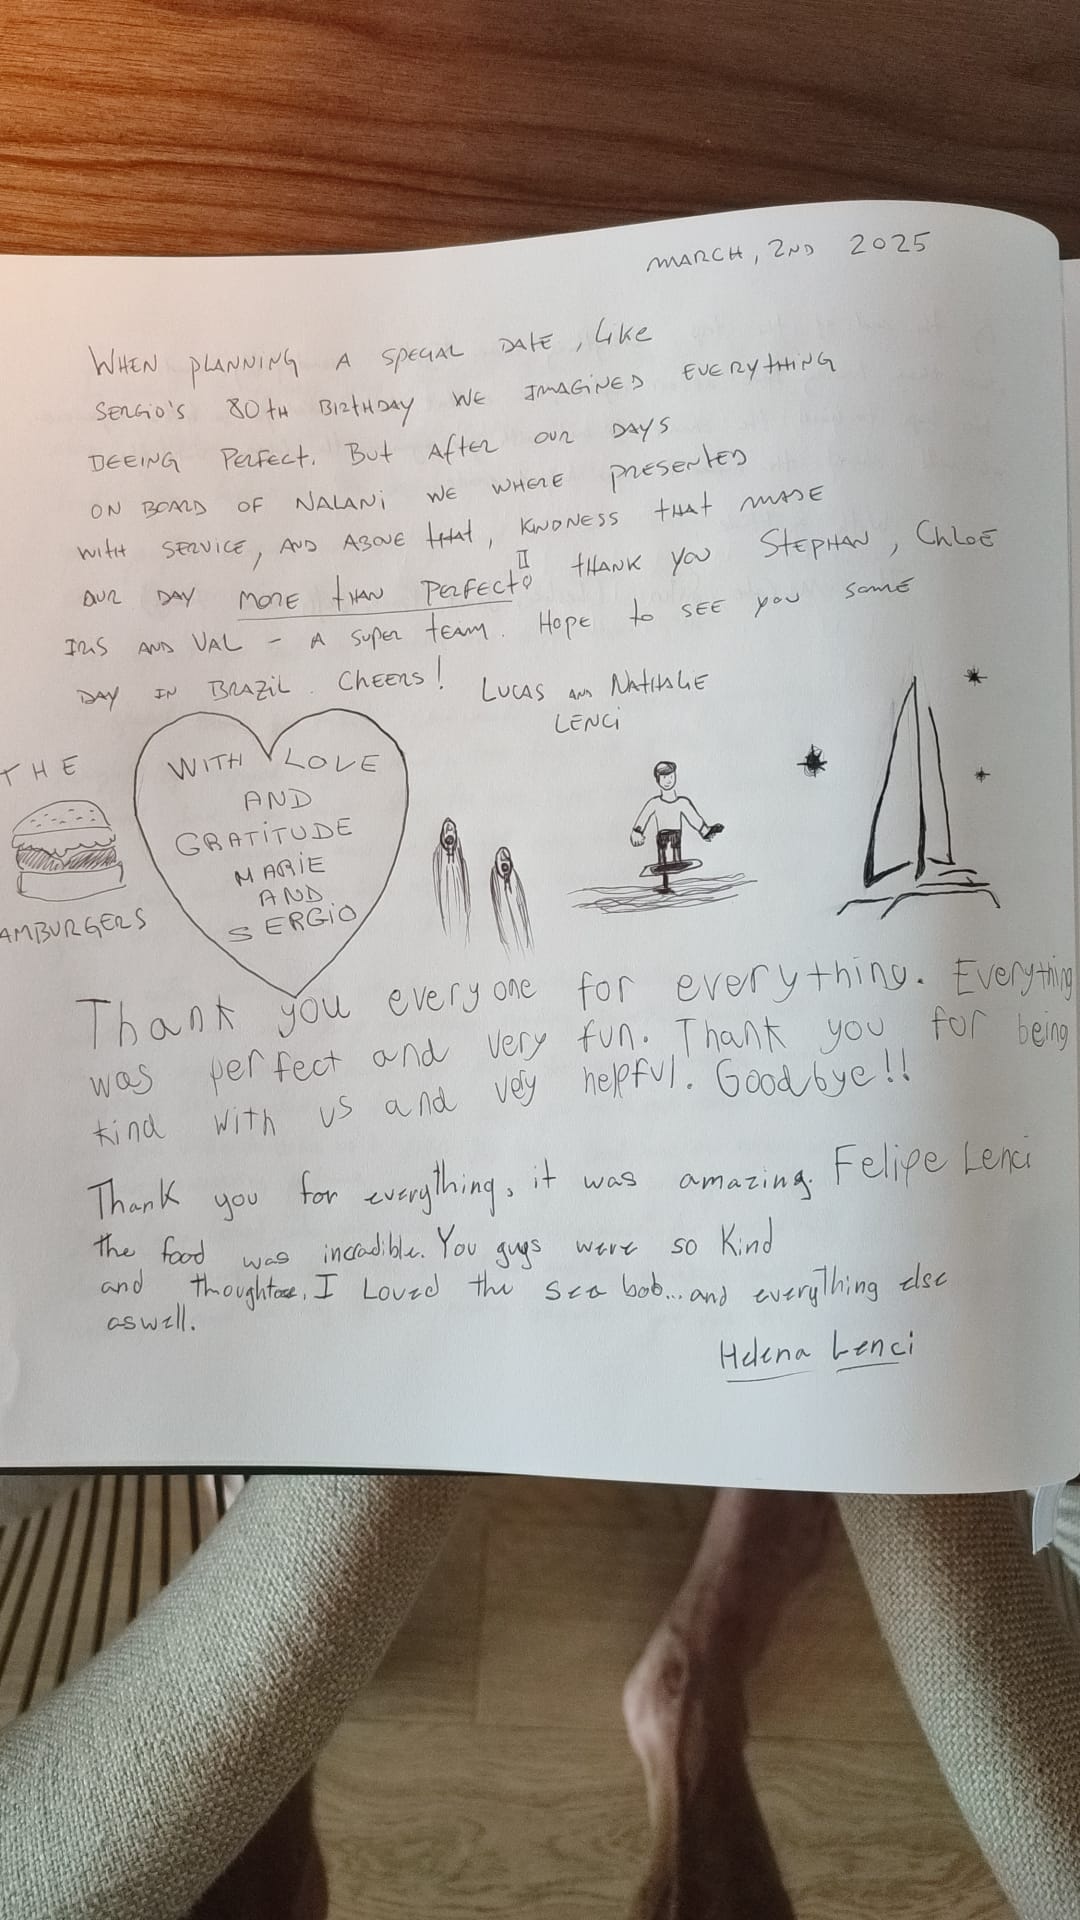 MARCH, 2ND 2025
WHEN PLANNING A SPECIAL DATE, LIKE
SERGIO'S 80TH BIRTHDAY WE IMAGINED EVERYTHING
BEEING PERFECT. BUT AFTER OUR DAYS
ON BOARD OF NALANI WE WHERE PRESENTED
WITH SERVICE, AND ABOVE THAT, KINDNESS THAT MADE
OUR DAY MORE THAN PERFECT!! THANK YOU STEPHAN, CHLOE
IRIS AND VAL - A SUPER TEAM. HOPE to SEE YOU SOME
DAY IN BRAZIL. CHEERS! LUCAS AND NATHALIE
LENCI
THE
AMBURGERS
WITH LOVE
AND
GRATITUDE
MARIE
AND
SERGIO
Thank you everyone for everything. Everything
was perfect and very fun. Thank you for being
kind with us and very helpful. Goodbye!!
Felipe Lenci
Thank you for everything, it was amazing.
the food was incradible. You guys were so Kind
and I Loved the sea bob... and everything else
aswell.
Helena Lenci